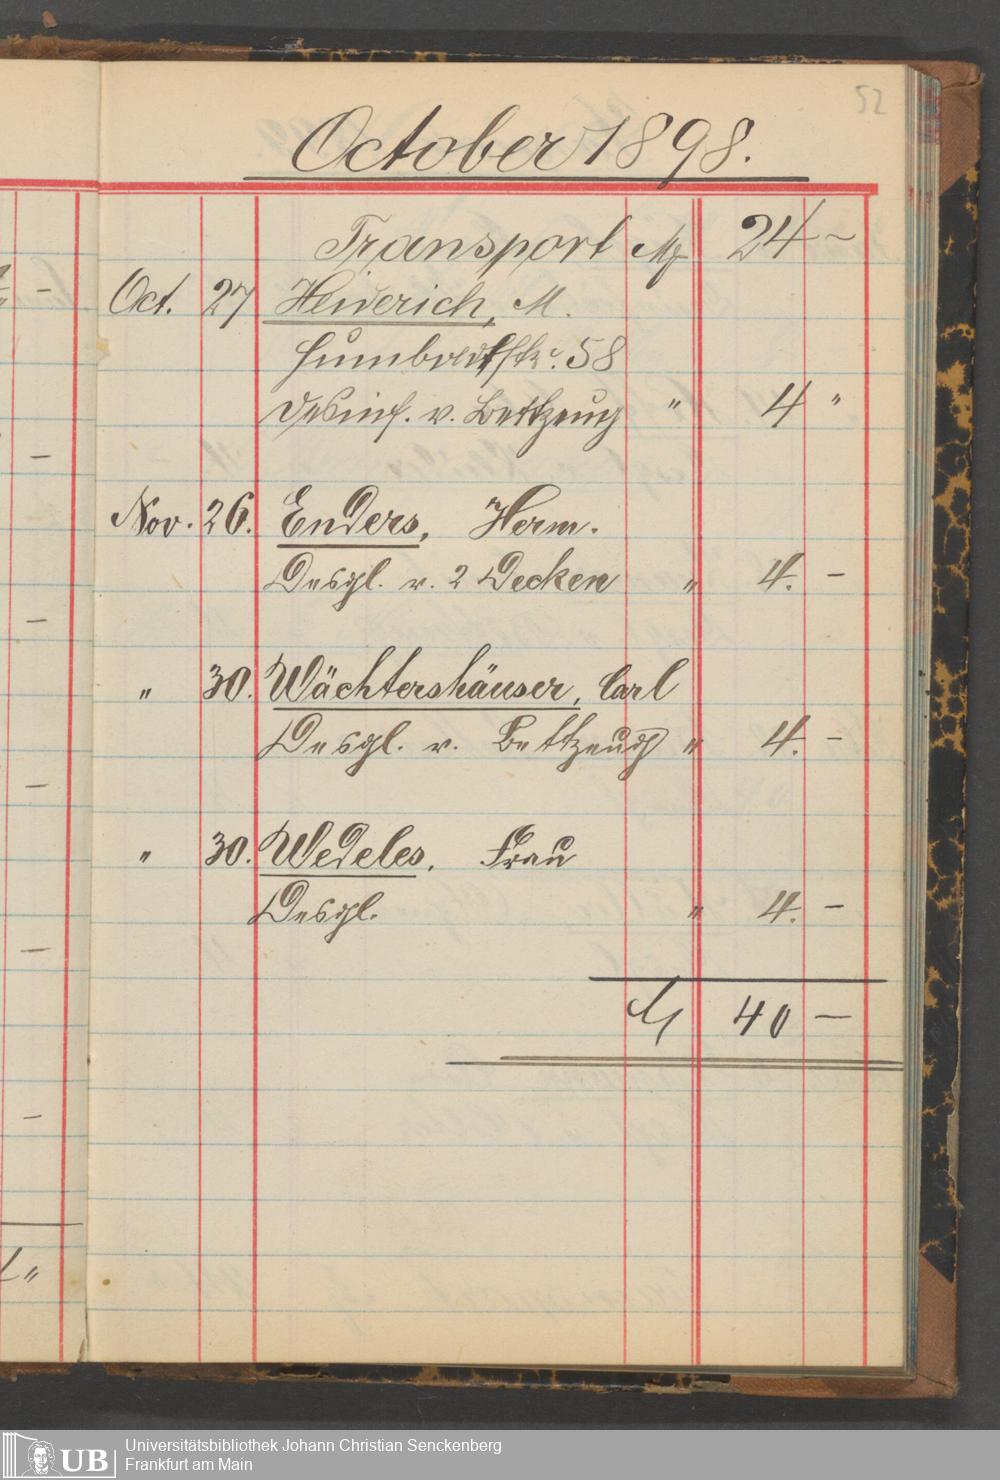 52
October 1898.
Transport M 24 –
Oct. 27 Heiderich, M.
Humboldtstr. 58
Desinf. v. Bettzeug " 4 "
Nov. 26. Enders, Herm.
Desgl. v. 2 Decken " 4. –
" 30. Wächtershäuser, Carl
Desgl. v. Bettzeug " 4. –
" 30. Wedeles, Frau
Desgl. " 4. –
M 40 –
UB
Universitätsbibliothek Johann Christian Senckenberg
Frankfurt am Main